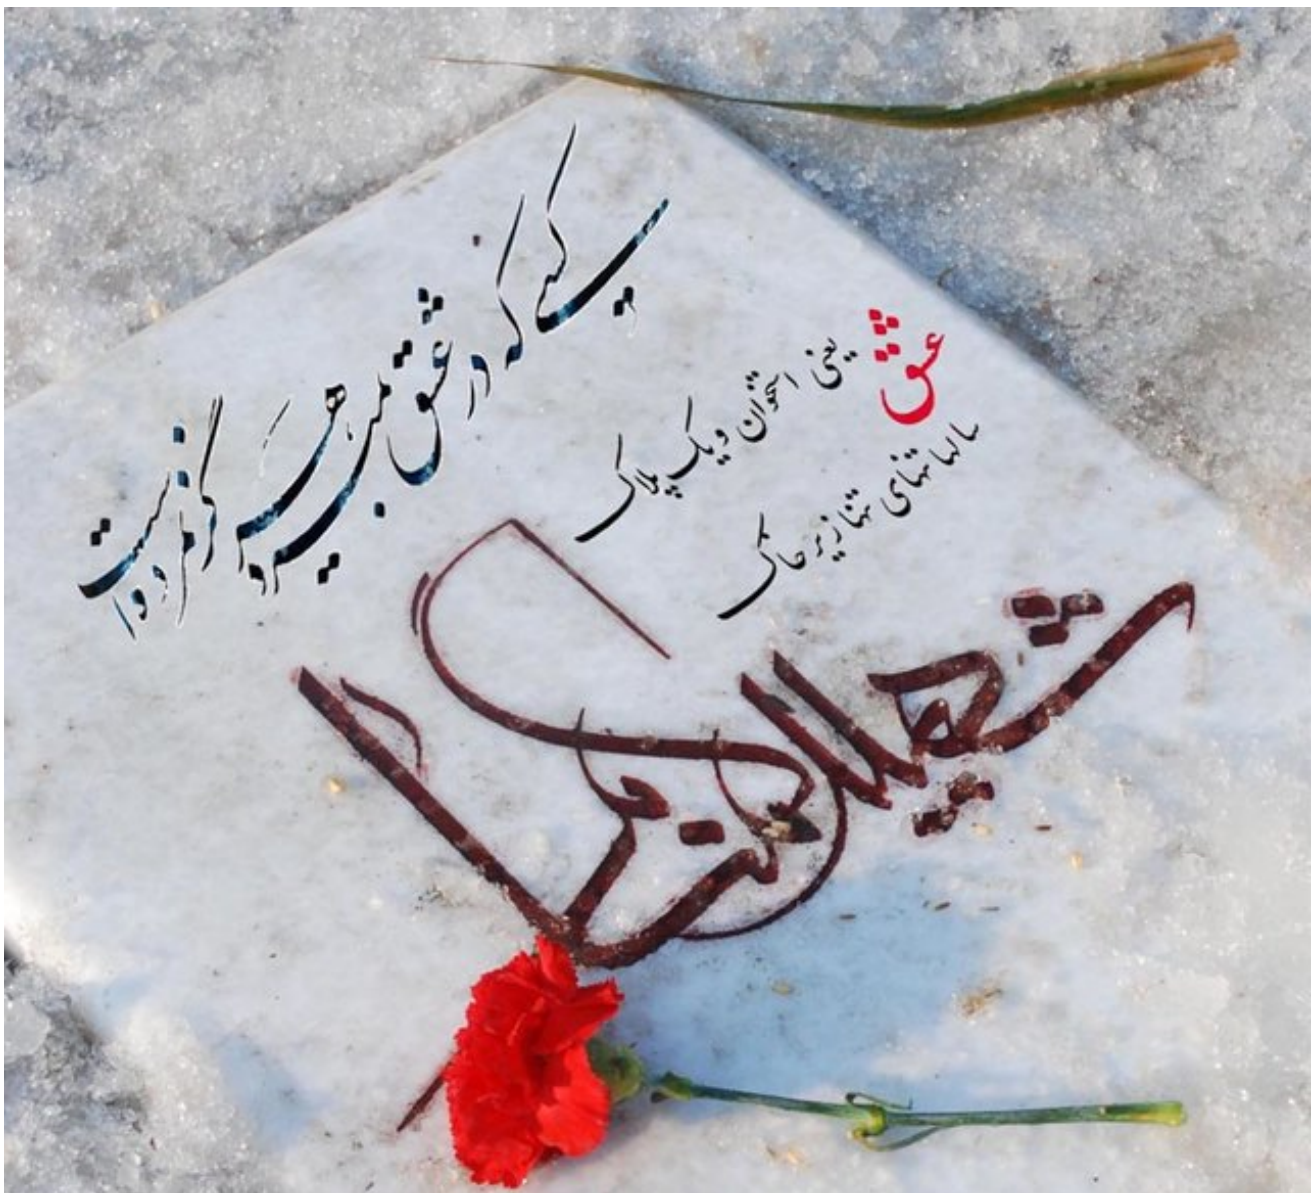 کسی که در عشق میمیرد هرگز نمرده است
عشق یعنی استخوان و یک پلاک
سالها تنهای تنها زیر خاک